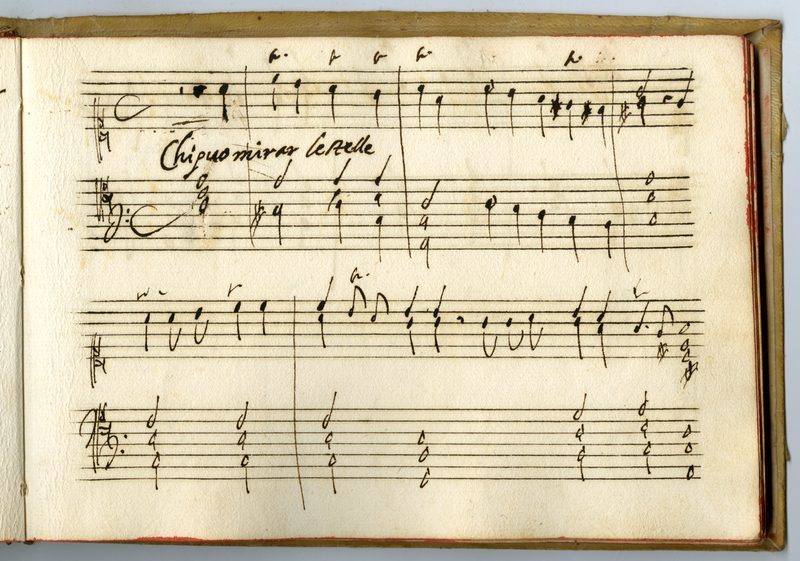 Chi puo mirar le stelle